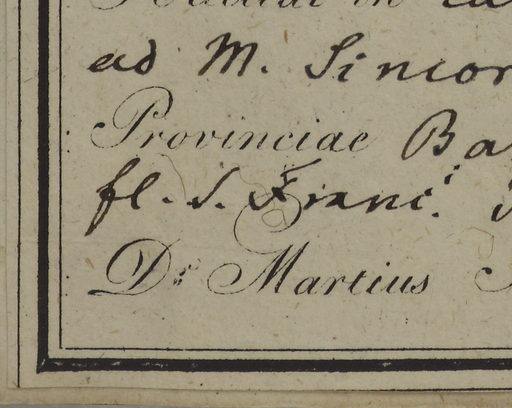 Habitat in
ad M. Sincor
Provinciae Ba
fl. S. Franc.
Dr. Martius